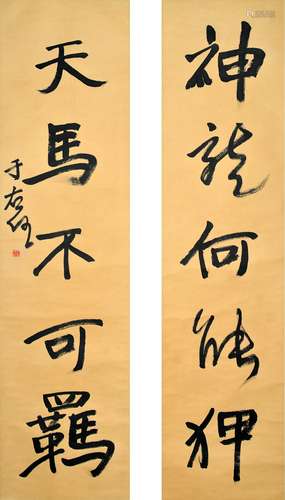 神龍何能狎
天馬不可羈
于右任